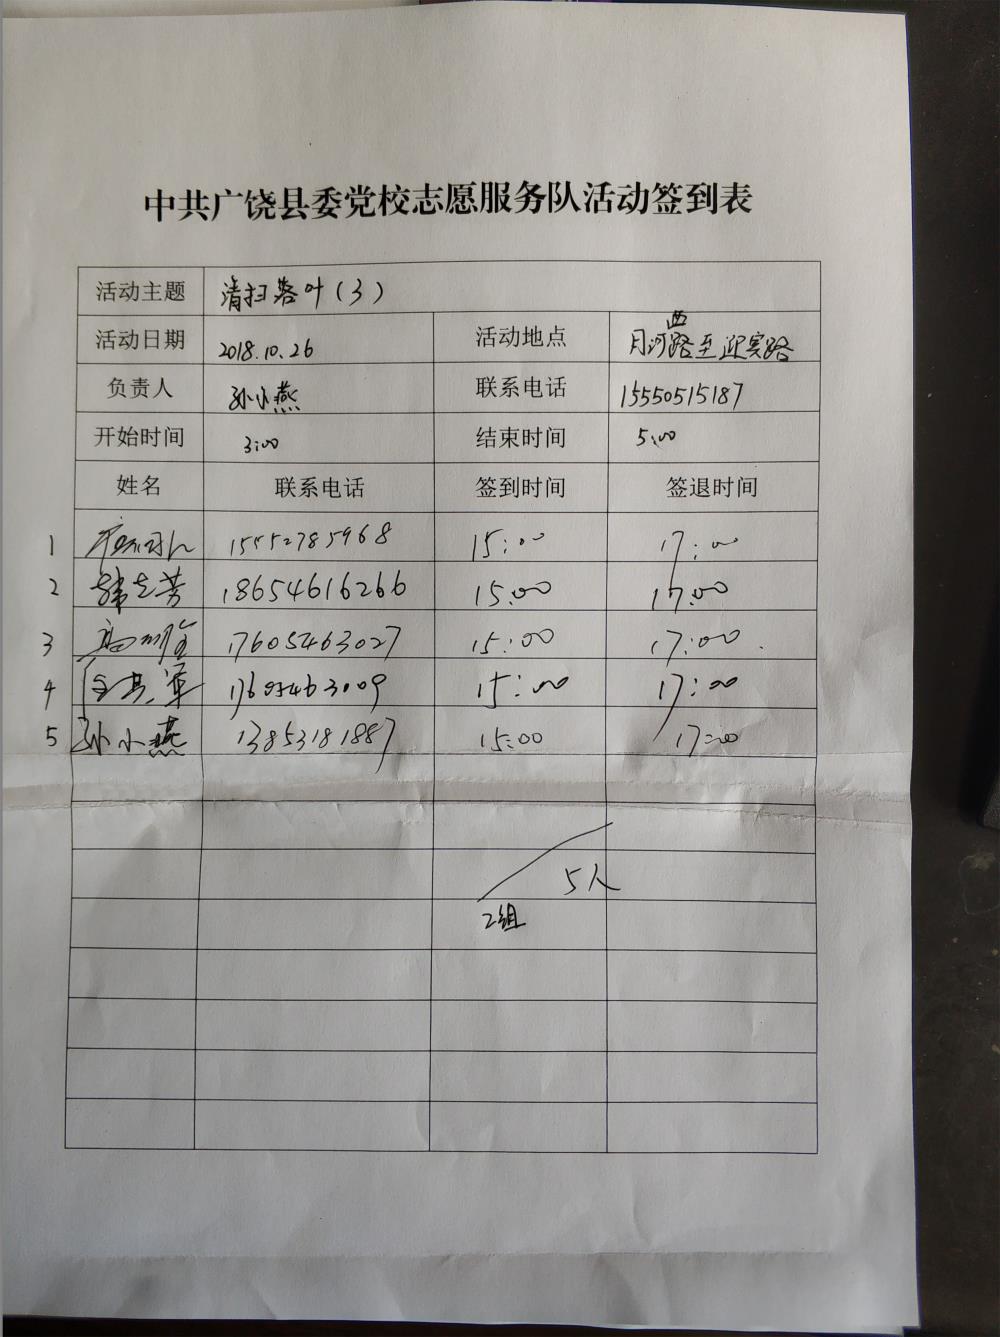 中共广饶县委党校志愿服务队活动签到表
活动主题 清扫落叶(3)
活动日期 2018.10.26 活动地点 月河西路至迎宾路
负责人 孙小燕 联系电话 15550515187
开始时间 3:00 结束时间 5:00
姓名 联系电话 签到时间 签退时间
1 15552785968 15:00 17:00
2 韩志芳 18654616266 15:00 17:00
3 17605463027 15:00 17:00
4 17605463009 15:00 17:00
5 孙小燕 13853181887 15:00 17:00
5人
2组